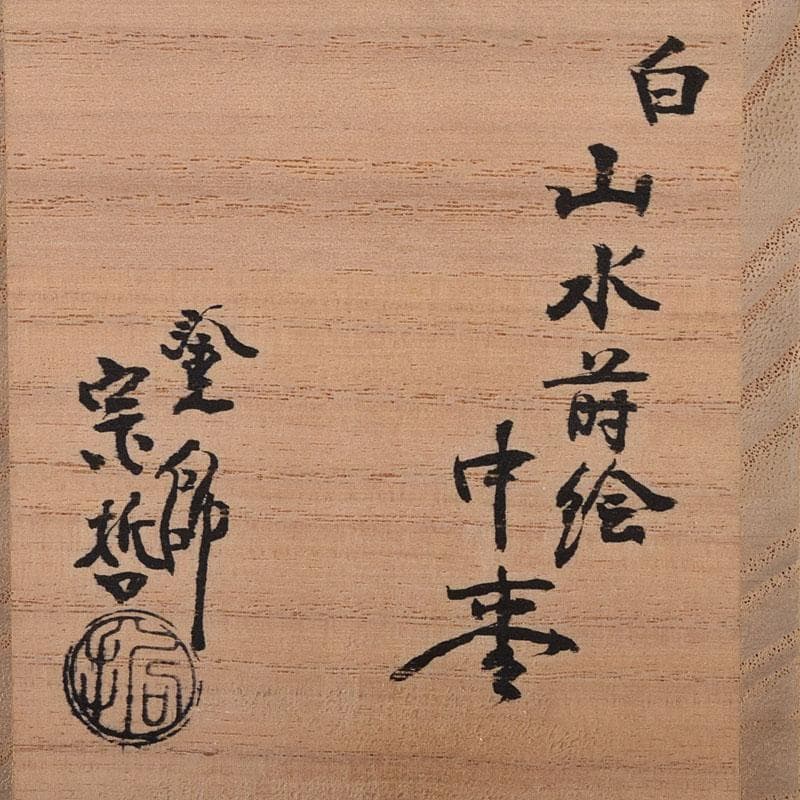 白山水蒔絵
中棗
塗師
宗哲
哲